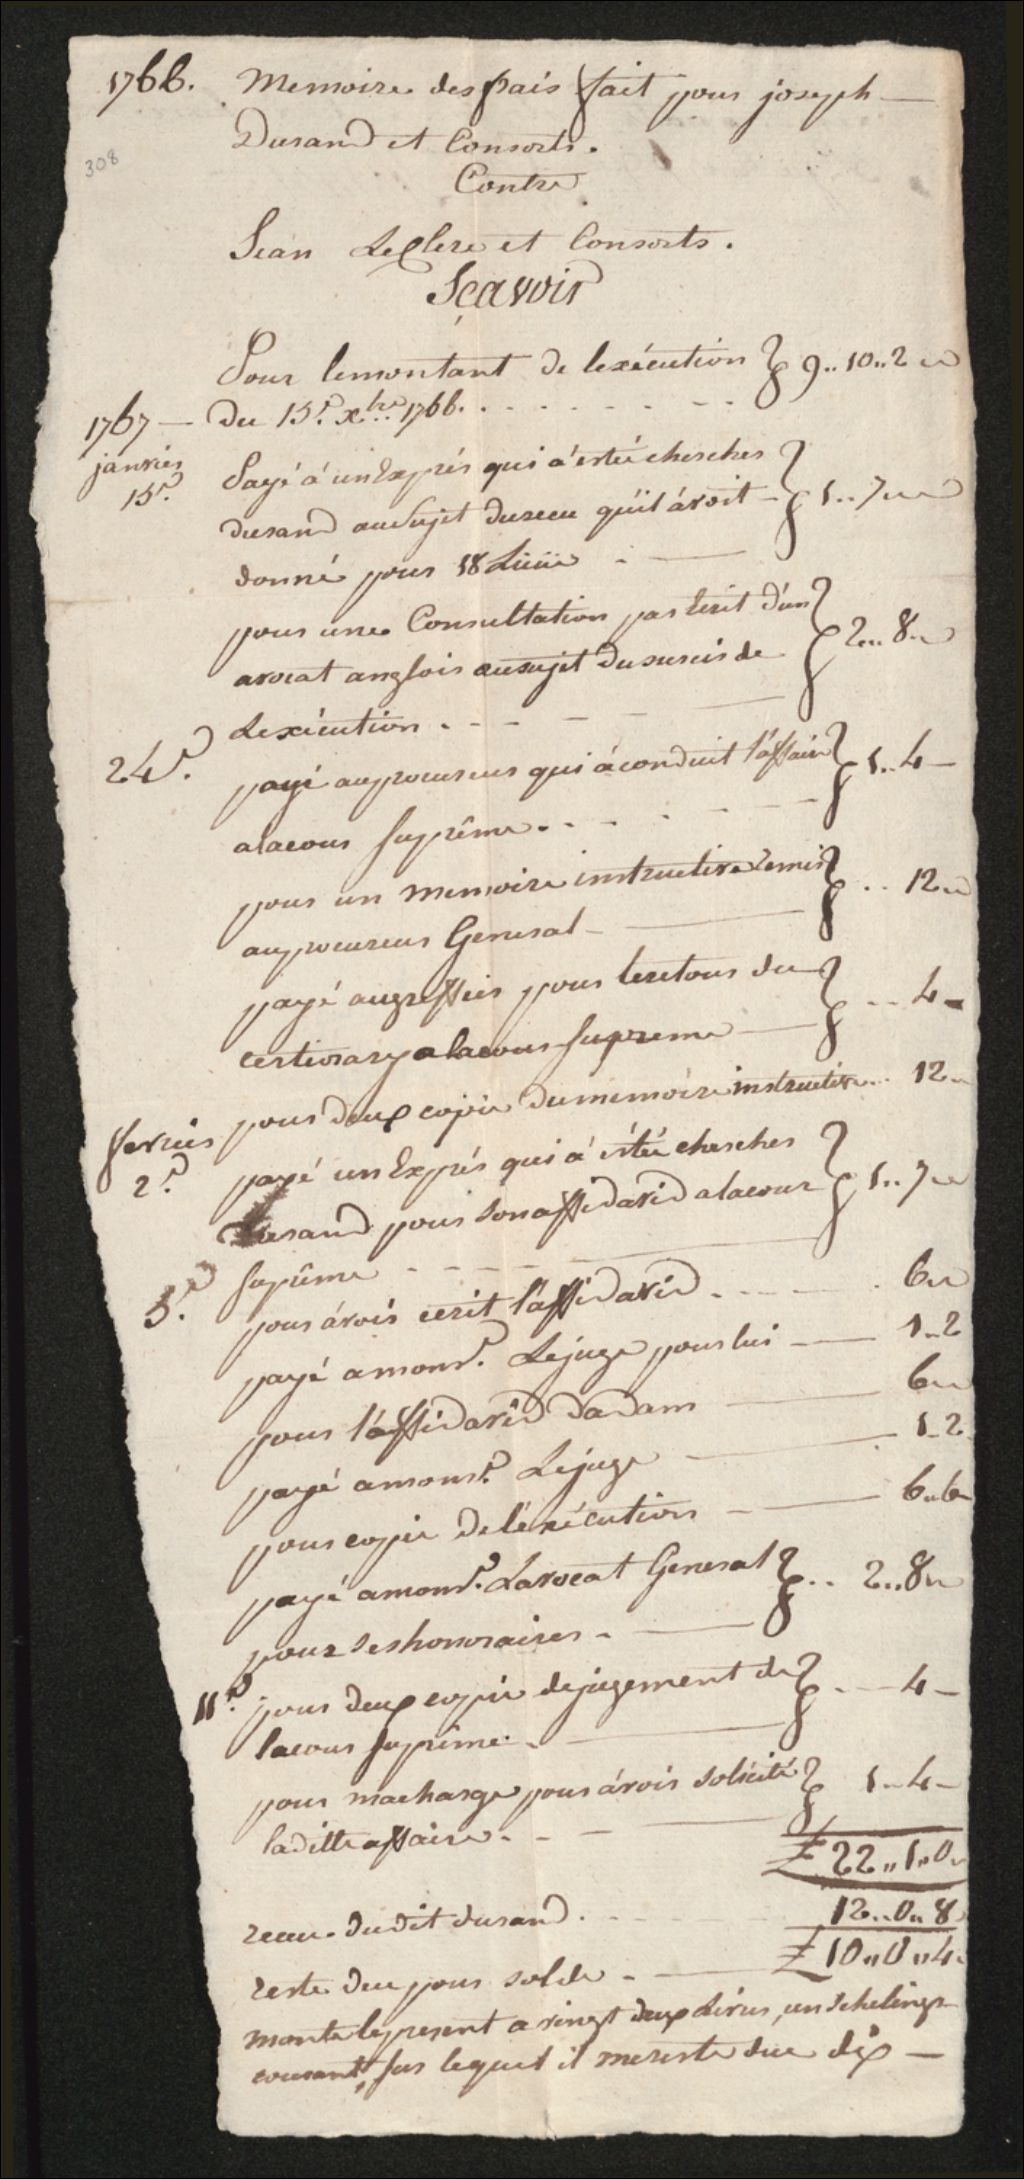 1766. Memoire des frais fait pour joseph
308
Durand et Consorts.
Contre
Jean LeClerc et Consorts.
Sçavoir
Pour lemontant de lexécution 9..10..2
1767 — Du 15.e xbre 1766.
janvier
15e. Payé á un Exprés qui á esté chercher
durand au Sujet durecu quil ávoit 1..7
donné pour 18 Livre
pour une Consultation par Ecrit d'un
avocat anglois ausujet Dusursis de 2..8
Lexécution
24e. payé auprocureur qui áconduit l'affaire 1..4
alacour suprême
pour un memoire instructive remis .. 12
auprocureur General
payé augreffier pour leretour du .. 4
certiorary alacour supreme
pour deux copie dumemoire instructive ... 12
fevrier
2e. payé un Exprés qui á été chercher
durand pour sonaffidavid alacour 1..7
suprême
5e. pour ávoir ecrit l'affidavid 6
payé amonsr. Lejuge pour lui 1..2
pour l'affidavid dadam 6
payé amonsr. Lejuge 1..2
pour copie de l'éxécution 6..6
payé amonsr. Lavocat General .. 2..8
pour ses honoraires
11e. pour deux copie dejugement de 4
lacour suprême
pour macharge pour ávoir solicité 1..4
laditte affaire
£ 22,,1,,0
receu dudit durand 12..0..8
reste deu pour solde £ 10,,0,,4
monte lepresent a vingt deux Livres, un schelings
courant, sur lequel il mereste due dix —